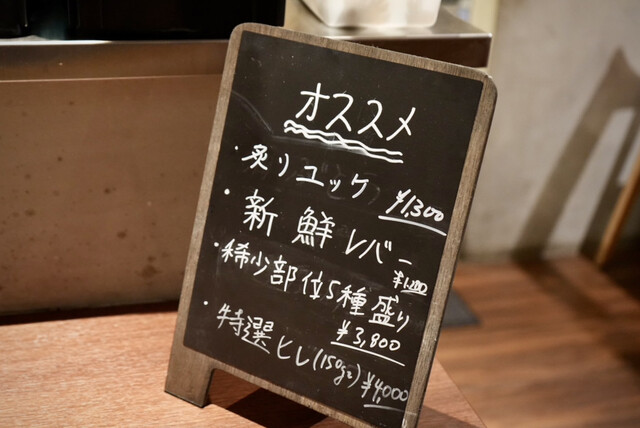 オススメ
・炙りユッケ ¥1,300
・新鮮レバー
¥1,200
・稀少部位5種盛り
¥3,800
・特選ヒレ(150g) ¥4,000